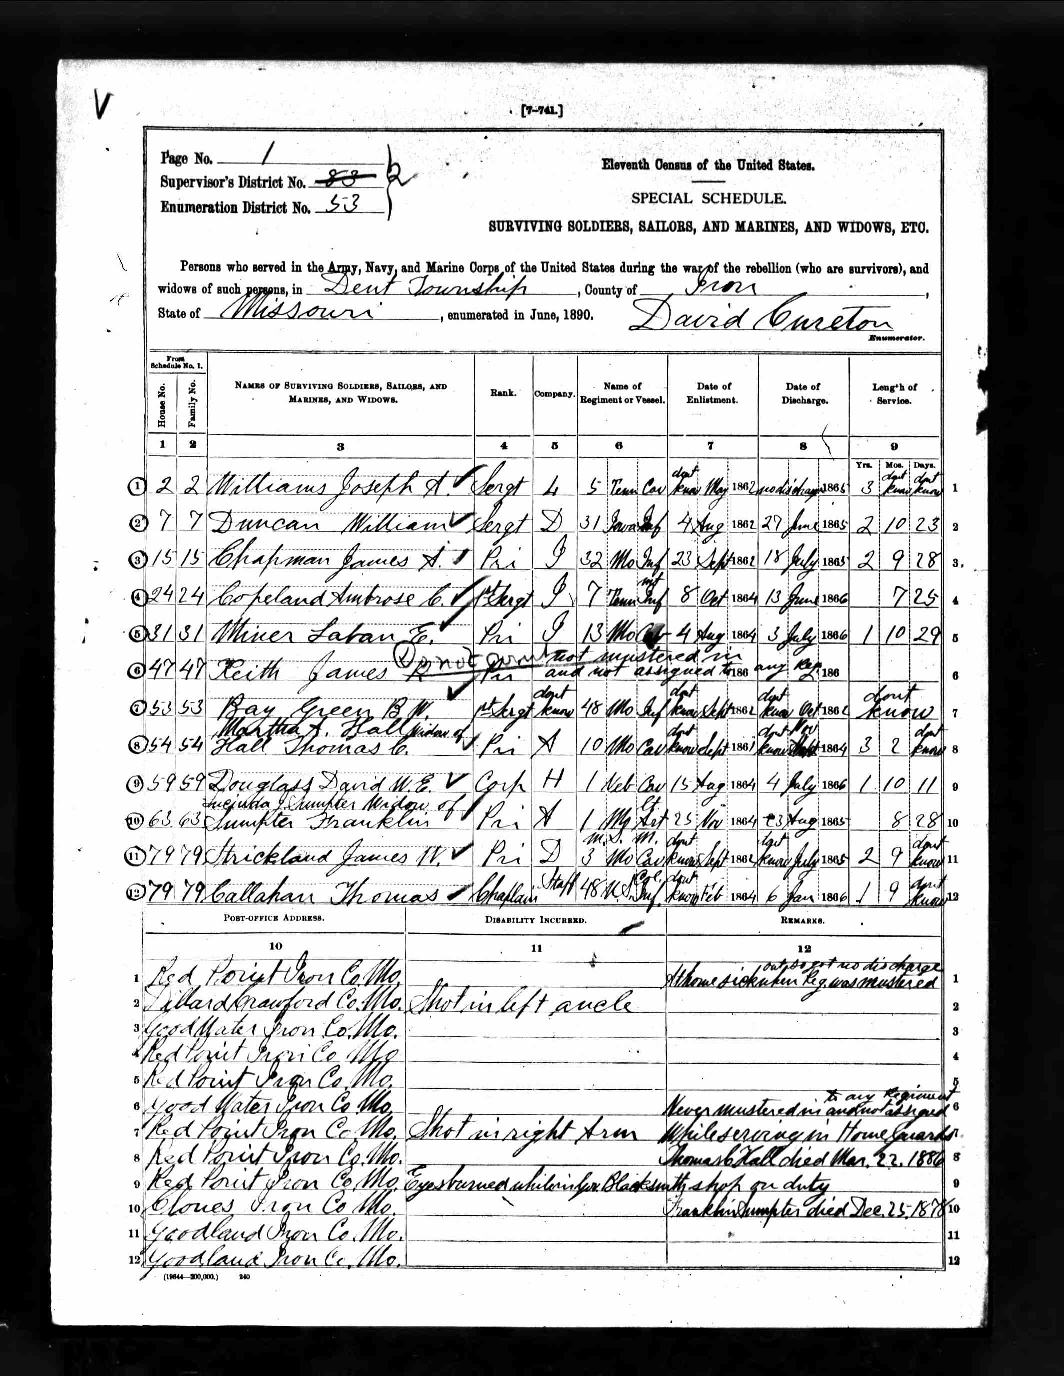 V
[7-741.]
Page No. 1
Supervisor's District No. 83 2
Enumeration District No. 53
Eleventh Census of the United States.
SPECIAL SCHEDULE.
SURVIVING SOLDIERS, SAILORS, AND MARINES, AND WIDOWS, ETC.
Persons who served in the Army, Navy, and Marine Corps of the United States during the war of the rebellion (who are survivors), and
widows of such persons, in Dent Township, County of Iron,
State of Missouri, enumerated in June, 1890. David Cureton
Enumerator.
From Schedule No. 1.
House No. Family No. NAMES OF SURVIVING SOLDIERS, SAILORS, AND MARINES, AND WIDOWS. Rank. Company. Name of Regiment or Vessel. Date of Enlistment. Date of Discharge. Length of Service.
1 2 3 4 5 6 7 8 9
Yrs. Mos. Days.
1 2 2 Williams Joseph A. Sergt L 5 Tenn Cav dont know May 1862 no discharge 1865 3 dont know dont know 1
2 7 7 Duncan William Sergt D 31 Iowa Inf 4 Aug 1862 27 June 1865 2 10 23 2
3 15 15 Chapman James A. Pri I 32 Mo Inf 23 Sept 1862 18 July 1865 2 9 28 3
4 24 24 Copeland Ambrose C. 1st Sergt I 7 Tenn mt Inf 8 Oct 1864 13 June 1866 7 25 4
5 31 31 Miner Laban E. Pri I 13 Mo Cav 4 Aug 1864 3 July 1866 1 10 29 5
Do not count not mustered in
6 47 47 Keith James R Pri and not assigned to 186 any Reg 186 6
7 53 53 Bay Green B W. 1st Sergt dont know 48 Mo Inf dont know Sept 1862 dont know Oct 1862 dont know 7
Martha A. Hall widow of
8 54 54 Hall Thomas C. Pri A 10 Mo Cav dont know Sept 1861 dont know Nov 1864 3 2 dont know 8
9 59 59 Douglass David W. E. Corp H 1 Neb Cav 15 Aug 1864 4 July 1866 1 10 11 9
Sumpter Widow of
10 63 63 Sumpter Franklin Pri A 1 Art 25 Nov 1864 23 Aug 1865 8 28 10
M. S. M.
11 79 79 Strickland James W. Pri D 3 Mo Cav dont know Sept 1862 dont know July 1865 2 9 dont know 11
12 79 79 Callahan Thomas Chaplain Staff 48 U.S. Col Inf dont know Feb 1864 6 Jan 1866 1 9 dont know 12
POST-OFFICE ADDRESS. DISABILITY INCURRED. REMARKS.
10 11 12
out so got no discharge
1 Red Point Iron Co. Mo. At home sick when Reg. was mustered 1
2 Dillard Crawford Co. Mo. Shot in left ancle 2
3 Good Water Iron Co. Mo. 3
4 Red Point Iron Co Mo 4
5 Red Point Iron Co Mo. 5
to any Regiment
6 Good Water Iron Co Mo. Never mustered in and not assigned 6
7 Red Point Iron Co Mo. Shot in right Arm While serving in Home guards 7
8 Red Point Iron Co. Mo. Thomas C Hall died Mar. 22. 1886 8
9 Red Point Iron Co Mo. Eyes burned while in Gov. Blacksmith shop on duty 9
10 Clones Iron Co Mo. Franklin Sumpter died Dec. 25, 1878 10
11 Goodland Iron Co. Mo. 11
12 Goodland Iron Co, Mo. 12
(19644—200,000.) 240